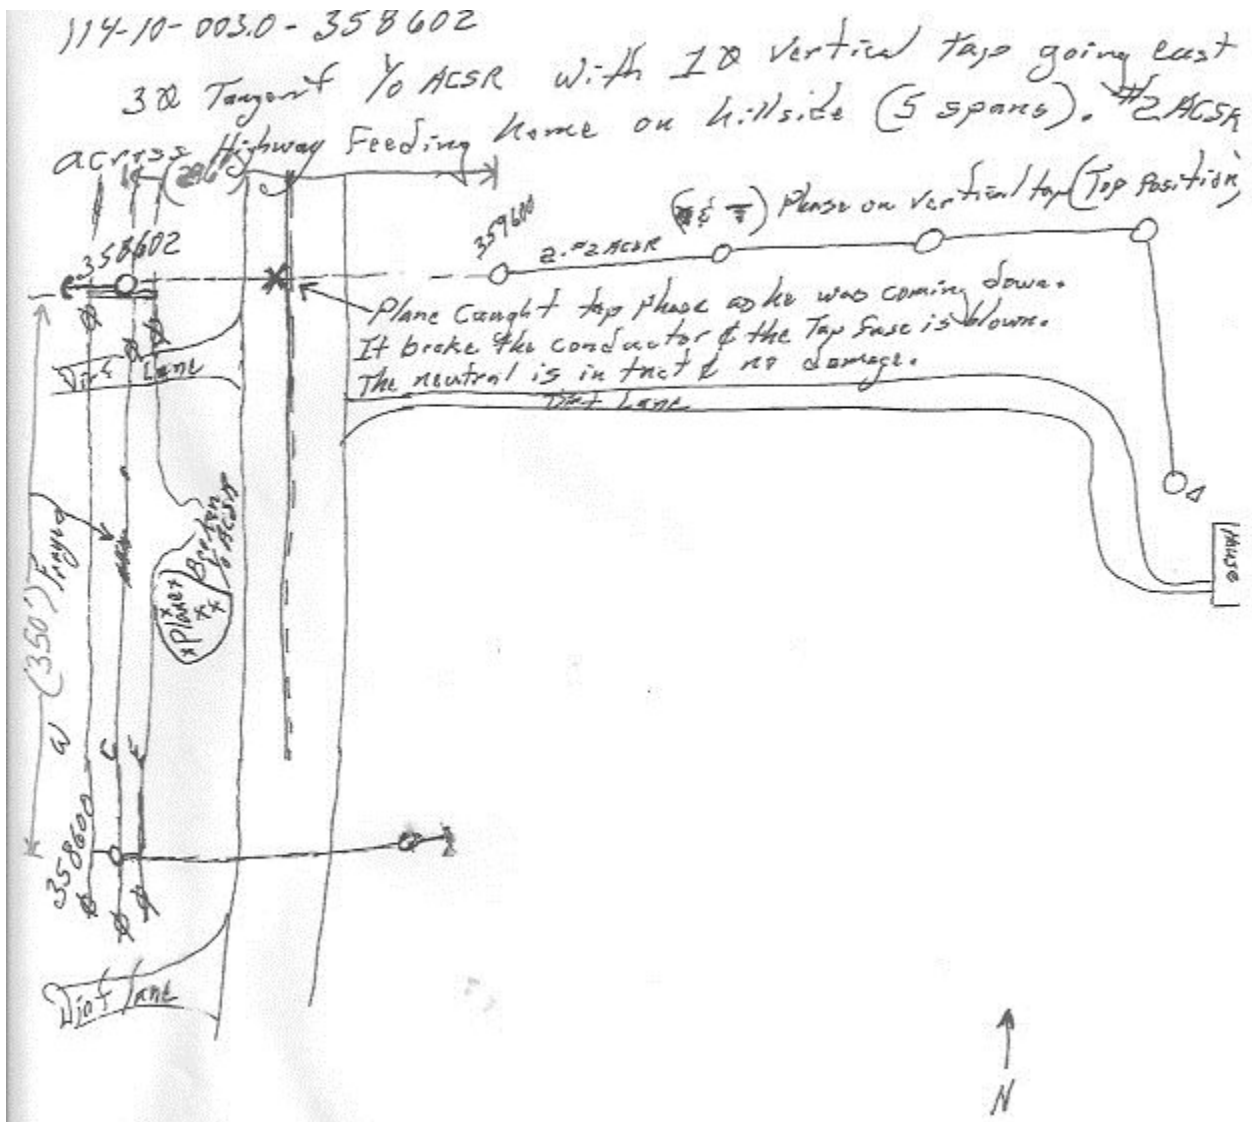 114-10-003.0-358602
3Ø Tangent 1/0 ACSR with 1Ø vertical tap going east
across Highway Feeding home on hillside (5 spans). #2 ACSR
358602
359600
2-#2 ACSR
Phase on vertical tap (Top Position)
Plane Caught tap phase as he was coming down.
It broke the conductor & the Tap fuse is blown.
The neutral is in tact & no damage.
Dirt Lane
Dirt Lane
(350')
Frayed
Broken
1/0 ACSR
Plane
House
358600
Dirt Lane
N